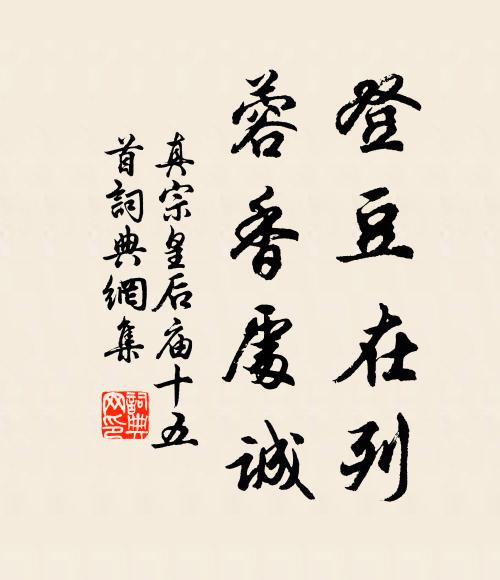 登豆在列
蓉香處誠
真宗皇后庙十五
首詞典網集
詞典
网印